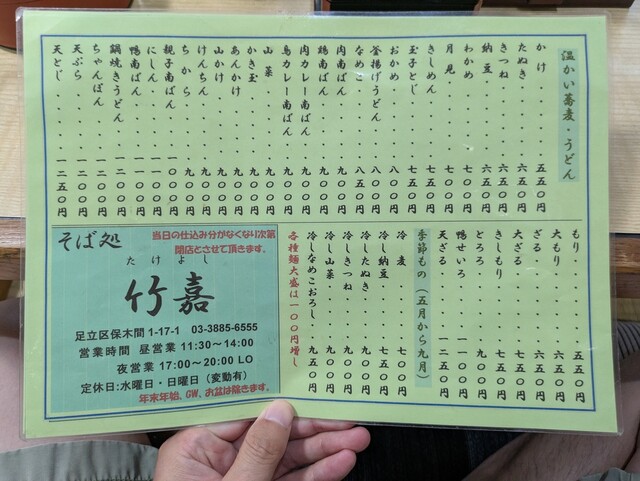 温かい蕎麦・うどん
かけ・・・・・・五五〇円
たぬき・・・・・六五〇円
きつね・・・・・六五〇円
納豆・・・・・・六五〇円
わかめ・・・・・七〇〇円
月見・・・・・・七〇〇円
きしめん・・・・七五〇円
玉子とじ・・・・七五〇円
おかめ・・・・・八〇〇円
釜揚げうどん・・八〇〇円
なめこ・・・・・八五〇円
肉南ばん・・・・九〇〇円
鶏南ばん・・・・九〇〇円
肉カレー南ばん・九〇〇円
鳥カレー南ばん・九〇〇円
山菜・・・・・・九〇〇円
かき玉・・・・・九〇〇円
あんかけ・・・・九〇〇円
山かけ・・・・・九〇〇円
けんちん・・・・九〇〇円
ちから・・・・・九〇〇円
親子南ばん・・一〇〇〇円
にしん・・・・一一〇〇円
鴨南ばん・・・一一〇〇円
鍋焼きうどん・一二〇〇円
ちゃんぽん・・一二〇〇円
天ぷら・・・・一二〇〇円
天とじ・・・・一二五〇円
もり・・・・・・五五〇円
大もり・・・・・六五〇円
ざる・・・・・・六五〇円
大ざる・・・・・七五〇円
きしもり・・・・七五〇円
とろろ・・・・・九〇〇円
鴨せいろ・・・一一〇〇円
天ざる・・・・一二五〇円
季節もの（五月から九月）
冷麦・・・・・・七〇〇円
冷し納豆・・・・七五〇円
冷したぬき・・・七五〇円
冷しきつね・・・七五〇円
冷し山菜・・・・九五〇円
冷しなめこおろし・九五〇円
各種麺大盛は一〇〇円増し
そば処
当日の仕込み分がなくなり次第
閉店とさせて頂きます。
たけよし
竹嘉
足立区保木間 1-17-1 03-3885-6555
営業時間 昼営業 11:30〜14:00
夜営業 17:00〜20:00 LO
定休日:水曜日・日曜日（変動有）
年末年始、GW、お盆は除きます。